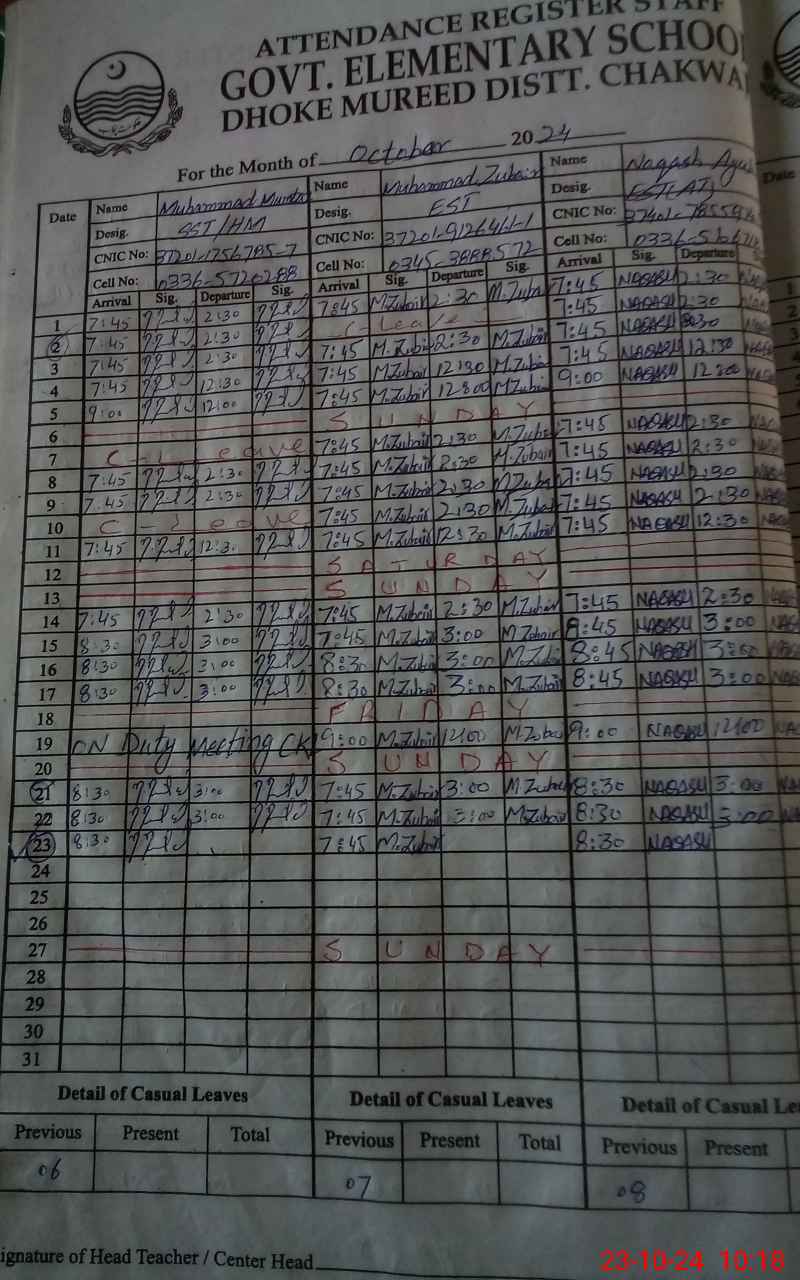 ATTENDANCE REGISTER STAFF
GOVT. ELEMENTARY SCHOO
DHOKE MUREED DISTT. CHAKWA
For the Month of October 2024
Date Name Muhammad Name Muhammad Zubair Name Naqash
Desig. SST/HM Desig. EST Desig.
CNIC No: 37201-1756785-7 CNIC No: CNIC No:
Cell No: 0336-5720288 Cell No: 0345-3888572 Cell No:
Arrival Sig. Departure Sig. Arrival Sig. Departure Sig. Arrival Sig. Departure
1 7:45 2:30 7:45 M.Zubair 2:30 M.Zubair 7:45 NAQASH 2:30
2 7:45 2:30 C-Leave 7:45 NAQASH 2:30
3 7:45 2:30 7:45 M.Zubair 2:30 M.Zubair 7:45 NAQASH
4 7:45 12:30 7:45 M.Zubair 12:30 M.Zubair 7:45 NAQASH 12:30
5 9:00 12:00 7:45 M.Zubair M.Zubair 9:00 NAQASH
6 SUNDAY
7 C-Leave 7:45 M.Zubair 2:30 M.Zubair 7:45 NAQASH 2:30
8 7:45 2:30 7:45 M.Zubair 2:30 M.Zubair 7:45 NAQASH 2:30
9 7:45 2:30 7:45 M.Zubair 2:30 M.Zubair 7:45 NAQASH 2:30
10 C-Leave 7:45 M.Zubair 2:30 M.Zubair 7:45 NAQASH 2:30
11 7:45 12:3 7:45 M.Zubair 12:30 M.Zubair 7:45 NAQASH 12:30
12 SATURDAY
13 SUNDAY
14 7:45 2:30 7:45 M.Zubair 2:30 M.Zubair 7:45 NAQASH 2:30
15 8:30 3:00 7:45 M.Zubair 3:00 M.Zubair 8:45 NAQASH 3:00
16 8:30 3:00 8:30 M.Zubair 3:00 M.Zubair 8:45 NAQASH 3:00
17 8:30 3:00 8:30 M.Zubair 3:00 M.Zubair 8:45 NAQASH 3:00
18 FRIDAY
19 ON Duty Meeting CKL 9:00 M.Zubair 12:00 M.Zubair 9:00 NAQASH 12:00
20 SUNDAY
21 8:30 3:00 7:45 M.Zubair 3:00 M.Zubair 8:30 NAQASH 3:00
22 8:30 3:00 7:45 M.Zubair 3:00 M.Zubair 8:30 NAQASH 3:00
23 8:30 7:45 M.Zubair 8:30 NAQASH
24
25
26
27 SUNDAY
28
29
30
31
Detail of Casual Leaves Detail of Casual Leaves Detail of Casual Le
Previous Present Total Previous Present Total Previous Present
06 07 08
ignature of Head Teacher / Center Head
23-10-24 10:18